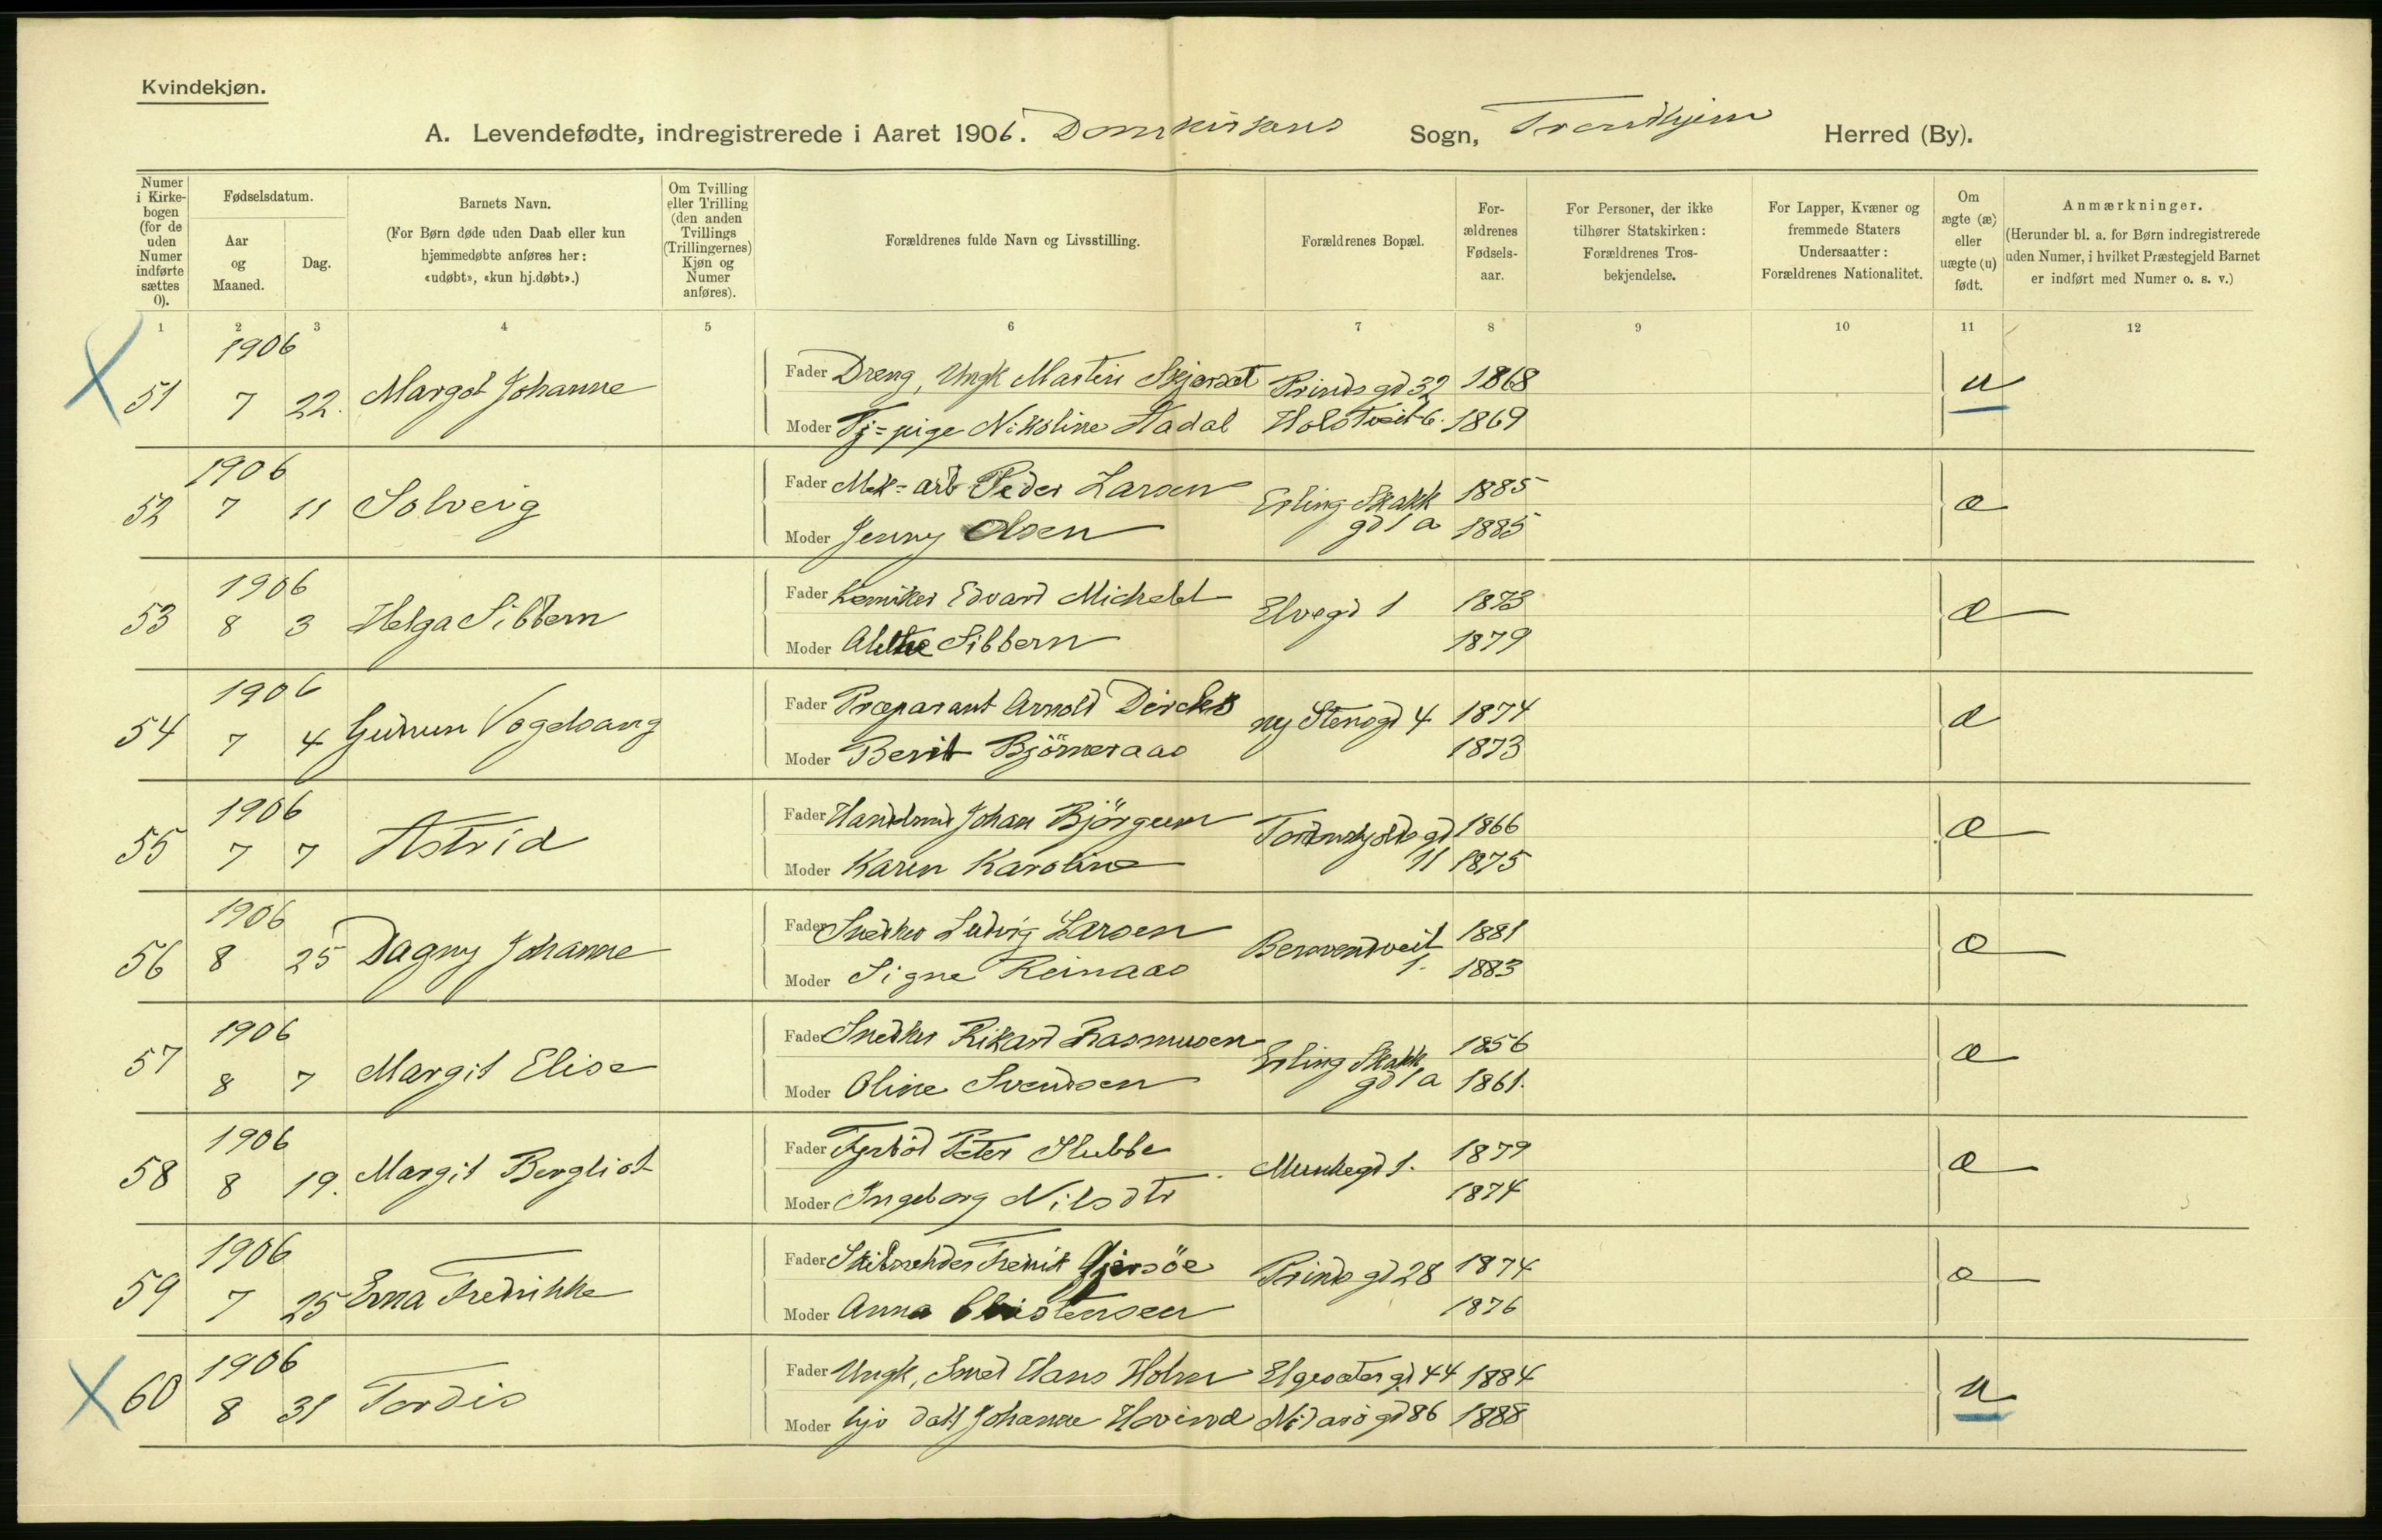 Kvindekjøn.
A. Levendefødte, indregistrerede i Aaret 1906. Domkirkens Sogn, Trondhjem Herred (By).
Numer i Kirkebogen (for de uden Numer indførte sættes 0).
Fødselsdatum.
Aar og Maaned.
Dag.
Barnets Navn.
(For Børn døde uden Daab eller kun hjemmedøbte anføres her: «udøbt», «kun hj.døbt».)
Om Tvilling eller Trilling (den anden Tvillings (Trillingernes) Kjøn og Numer anføres).
Forældrenes fulde Navn og Livsstilling.
Forældrenes Bopæl.
For-ældrenes Fødsels-aar.
For Personer, der ikke tilhører Statskirken: Forældrenes Tros-bekjendelse.
For Lapper, Kvæner og fremmede Staters Undersaatter: Forældrenes Nationalitet.
Om ægte (æ) eller uægte (u) født.
Anmærkninger.
(Herunder bl. a. for Børn indregistrerede uden Numer, i hvilket Præstegjeld Barnet er indført med Numer o. s. v.)
1 2 3 4 5 6 7 8 9 10 11 12
1906
51 7 22. Margot Johanne
Fader Dreng, Ungk Martin Prinds gd 32 1868 u
Moder Tj=pige Nikoline Aadal 6. 1869
1906
52 7 11 Solveig
Fader Mek=arb Peder Larsen Erling Skakk 1885 æ
Moder Jenny Olsen gd 1 a 1885
1906
53 8 3 Helga Sibbern
Fader Kemiker Edvard Michelet Elvegd 1 1873 æ
Moder Alethe Sibbern 1879
1906
54 7 4 Gudrun Vogelsang
Fader Præparant Arnold Dircks ny Stensgd 4 1874 æ
Moder Berit Björneraas 1873
1906
55 7 7 Astrid
Fader Johan Björgum Tordenskjolds gd 1866 æ
Moder Karen Karoline 11 1875
1906
56 8 25 Dagny Johanne
Fader Snedker Ludvig Larsen 1881 æ
Moder Signe Reinaas 1. 1883
1906
57 8 7 Margit Elise
Fader Snedker Rikard Rasmusen Erling Skakk 1856 æ
Moder Oline Svendsen gd 1 a 1861.
1906
58 8 19. Margit Bergliot
Fader Fyrbød Peter Stubbe Munkegd 1. 1879 æ
Moder Ingeborg Nilsdtr 1874
1906
59 7 25 Erna Fredrikke
Fader Fredrik Gjersöe Prinds gd 28 1874 æ
Moder Anna Christensen 1876
1906
60 8 31 Tordis
Fader Ungk, Smed Hans Holm Elgesæter gd 44 1884 u
Moder hjv datt Johanne Hovind Nidarö gd 86 1888